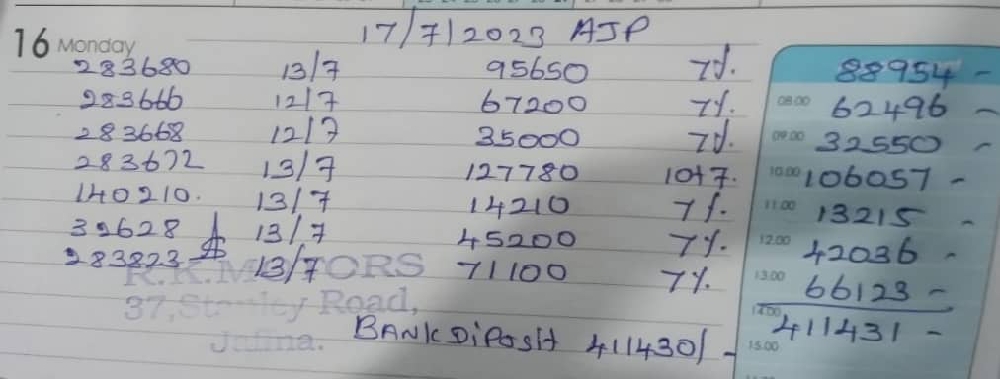 17/7/2023 AJP
16 Monday
283680 13/7 95650 7%. 88954 -
283666 12/7 67200 7%. 08.00 62496 -
283668 12/7 35000 7%. 09.00 32550 -
283672 13/7 127780 10+7. 10.00 106057 -
140210. 13/7 14210 7%. 11.00 13215 -
39628 13/7 45200 7%. 12.00 42036 -
283823 13/7 71100 7%. 13.00 66123 -
R.K.MOTORS
37,Stanley Road, 14.00 411431 -
Jaffna. BANK DiPosit 411430/- 15.00